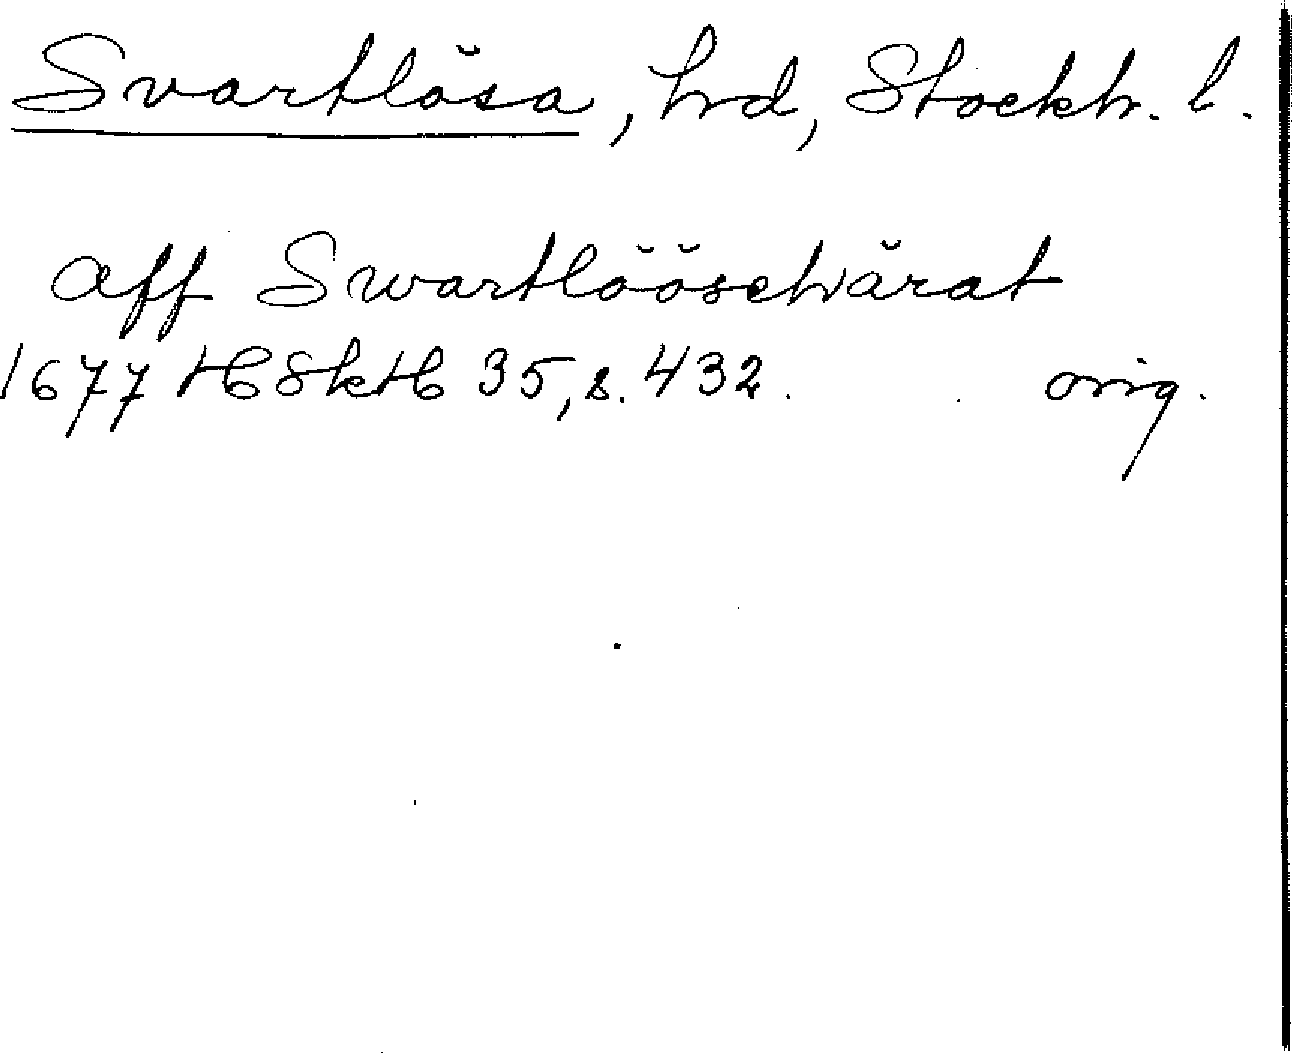 Svartlösa, hrd, Stockh. l.
aff Swartlöösehärat
1677 HSkH 35, s. 432. orig.